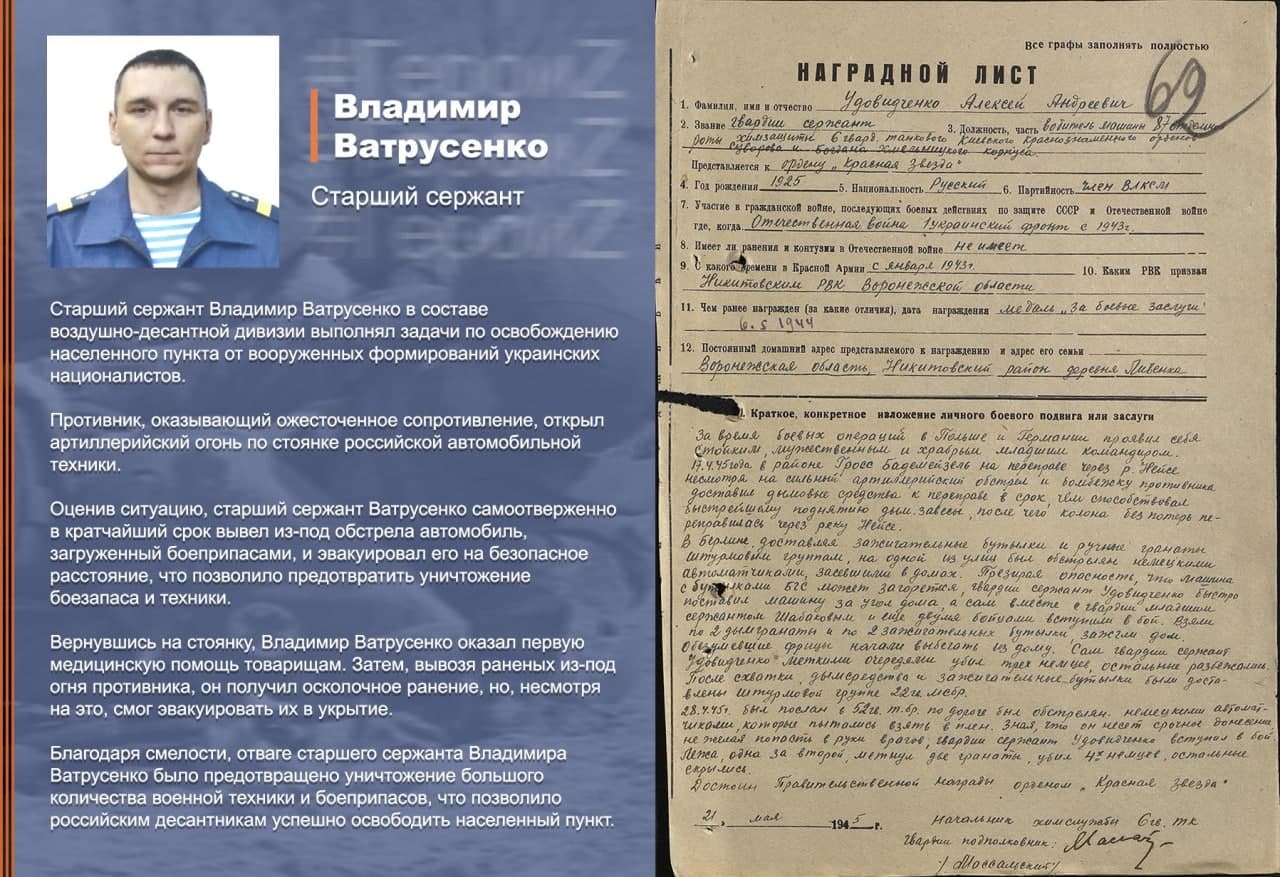 #ГероиZ
Владимир
Ватрусенко
Старший сержант
Старший сержант Владимир Ватрусенко в составе
воздушно-десантной дивизии выполнял задачи по освобождению
населенного пункта от вооруженных формирований украинских
националистов.
Противник, оказывающий ожесточенное сопротивление, открыл
артиллерийский огонь по стоянке российской автомобильной
техники.
Оценив ситуацию, старший сержант Ватрусенко самоотверженно
в кратчайший срок вывел из-под обстрела автомобиль,
загруженный боеприпасами, и эвакуировал его на безопасное
расстояние, что позволило предотвратить уничтожение
боезапаса и техники.
Вернувшись на стоянку, Владимир Ватрусенко оказал первую
медицинскую помощь товарищам. Затем, вывозя раненых из-под
огня противника, он получил осколочное ранение, но, несмотря
на это, смог эвакуировать их в укрытие.
Благодаря смелости, отваге старшего сержанта Владимира
Ватрусенко было предотвращено уничтожение большого
количества военной техники и боеприпасов, что позволило
российским десантникам успешно освободить населенный пункт.
Все графы заполнять полностью
НАГРАДНОЙ ЛИСТ
62
1. Фамилия, имя и отчество Удовидченко Алексей Андреевич
2. Звание гвардии сержант 3. Должность, часть водитель машины 87
роты химзащиты 6 гвард. танкового Киевского Краснознаменного орденов
Суворова и Богдана Хмельницкого корпуса.
Представляется к ордену „Красная Звезда"
4. Год рождения 1925 5. Национальность Русский 6. Партийность член ВЛКСМ
7. Участие в гражданской войне, последующих боевых действиях по защите СССР и Отечественной войне
где, когда Отечественная война 1 украинский фронт с 1943г.
8. Имеет ли ранения и контузии в Отечественной войне не имеет
9. С какого времени в Красной Армии с января 1943г. 10. Каким РВК призван
Никитовским РВК Воронежской области
11. Чем ранее награжден (за какие отличия), дата награждения медаль „За боевые заслуги"
6.5 1944
12. Постоянный домашний адрес представляемого к награждению и адрес его семьи
Воронежская область, Никитовский район деревня Ливенка
Краткое, конкретное изложение личного боевого подвига или заслуги
За время боевых операций в Польше и Германии проявил себя
стойким, мужественным и храбрым младшим командиром.
17.4.45 года в районе Гросс Бадемейзель на переправе через р. Нейсе
несмотря на сильный артиллерийский обстрел и бомбежку противника
доставил дымовые средства к переправе в срок, чем способствовал
быстрейшему поднятию дым. завесы, после чего колона без потерь пе-
реправилась через реку Нейсе.
В Берлине, доставляя зажигательные бутылки и ручные гранаты
штурмовым группам, на одной из улиц был обстрелян немецкими
автоматчиками, засевшими в домах. Презирая опасность, что машина
с бутылками БГС может загорется, гвардии сержант Удовидченко быстро
поставил машину за угол дома, а сам вместе с гвардии младшим
сержантом Шабаковым и еще двумя бойцами вступили в бой. Взяли
по 2 дымгранаты и по 2 зажигательных бутылки, зажгли дом.
Обезумевшие фрицы начали выбегать из дому. Сам гвардии сержант
Удовидченко меткими очередями убил трех немцев, остальные разбежались.
После схватки, дымсредства и зажигательные бутылки были доста-
влены штурмовой группе 22 гв. мсбр.
28.4.45г. был послан в 52 гв. т. бр. по дороге был обстрелян немецкими автомат-
чиками, которые пытались взять в плен. Зная, что он несет срочное донесение
не желая попасть в руки врагов, гвардии сержант Удовидченко вступил в бой
Лежа, одна за второй, метнул две гранаты, убил 4х немцев, остальные
скрылись.
Достоин Правительственной награды орденом „Красная Звезда"
21 мая 1945 г.
Начальник химслужбы 6 гв. тк
гвардии подполковник:
/Массальский/